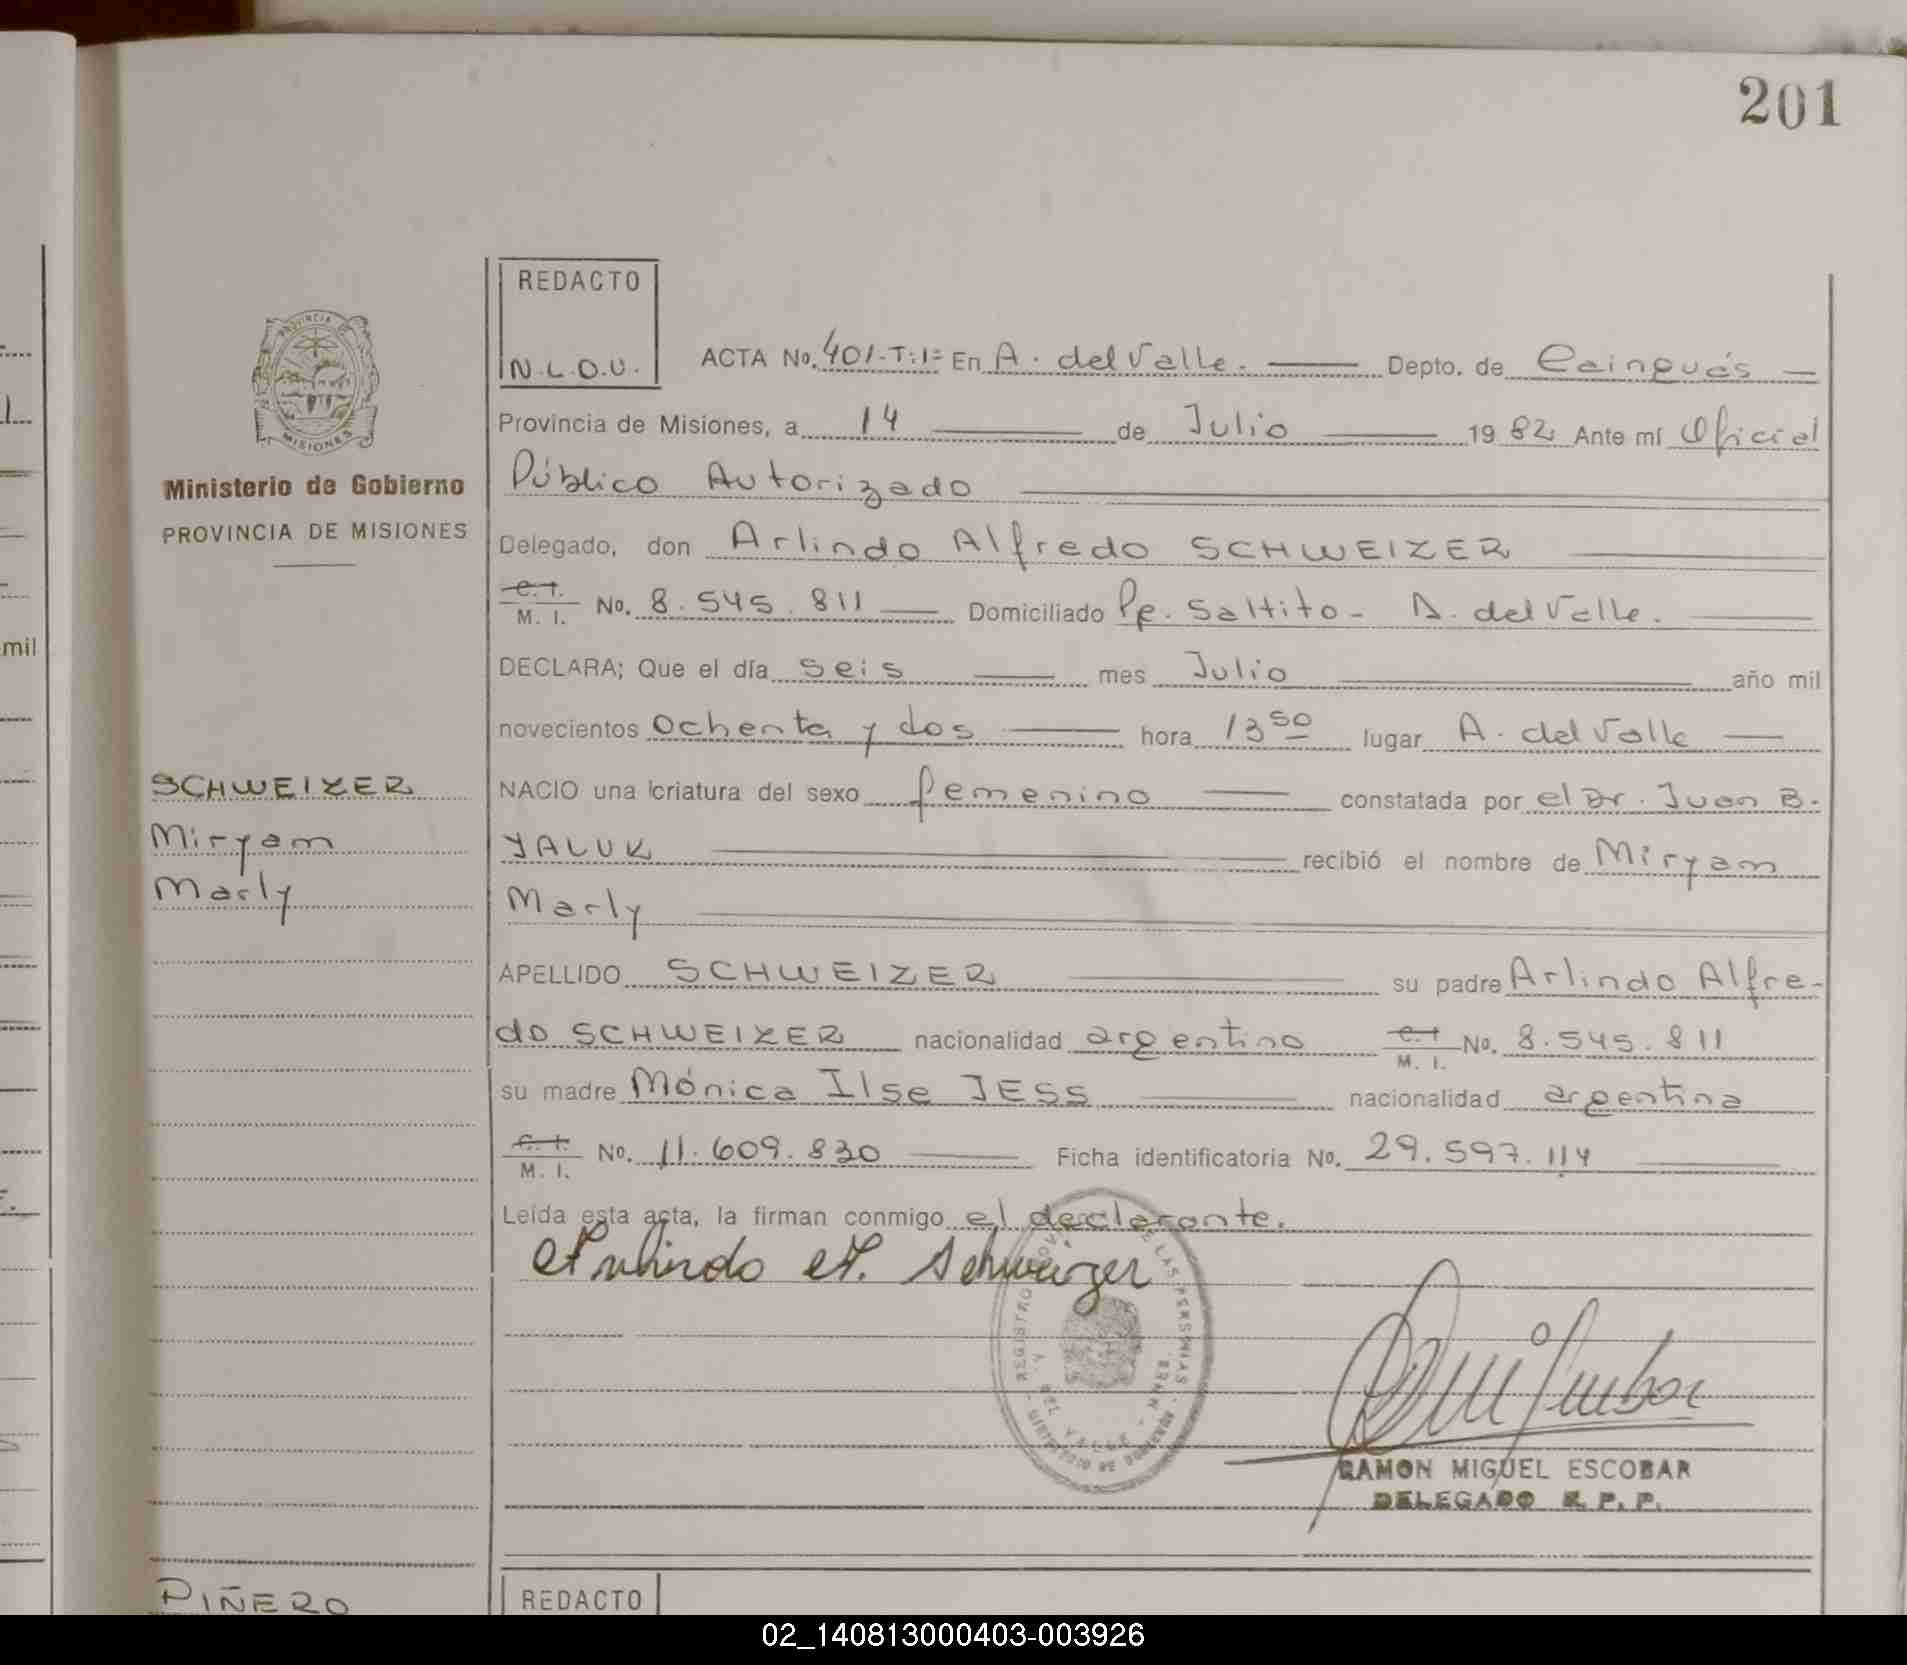 201
REDACTO
N.L.O.U.
ACTA No. 401-T:1= En A. del Valle. Depto. de Cainguás
Provincia de Misiones, a 14 de Julio 1982 Ante mí Oficial
Público Autorizado
PROVINCIA DE
MISIONES
Ministerio de Gobierno
PROVINCIA DE MISIONES
Delegado, don Arlindo Alfredo SCHWEIZER
C. I.
M. I. No. 8.545.811 Domiciliado Pe. Saltito - A. del Valle.
DECLARA; Que el día seis mes Julio año mil
novecientos ochenta y dos hora 13 50 lugar A. del Valle
NACIO una criatura del sexo femenino constatada por el Dr. Juan B.
YALUK recibió el nombre de Miryam
Marly
SCHWEIZER
Miryam
Marly
APELLIDO SCHWEIZER su padre Arlindo Alfre-
do SCHWEIZER nacionalidad argentino C. I.
M. I. No. 8.545.811
su madre Mónica Ilse JESS nacionalidad argentina
C. I.
M. I. No. 11.609.830 Ficha identificatoria No. 29.597.114
Leída esta acta, la firman conmigo el declarante.
Arlindo A. Schweizer
RAMON MIGUEL ESCOBAR
DELEGADO R. P. P.
PIÑERO
REDACTO
mil
02_140813000403-003926